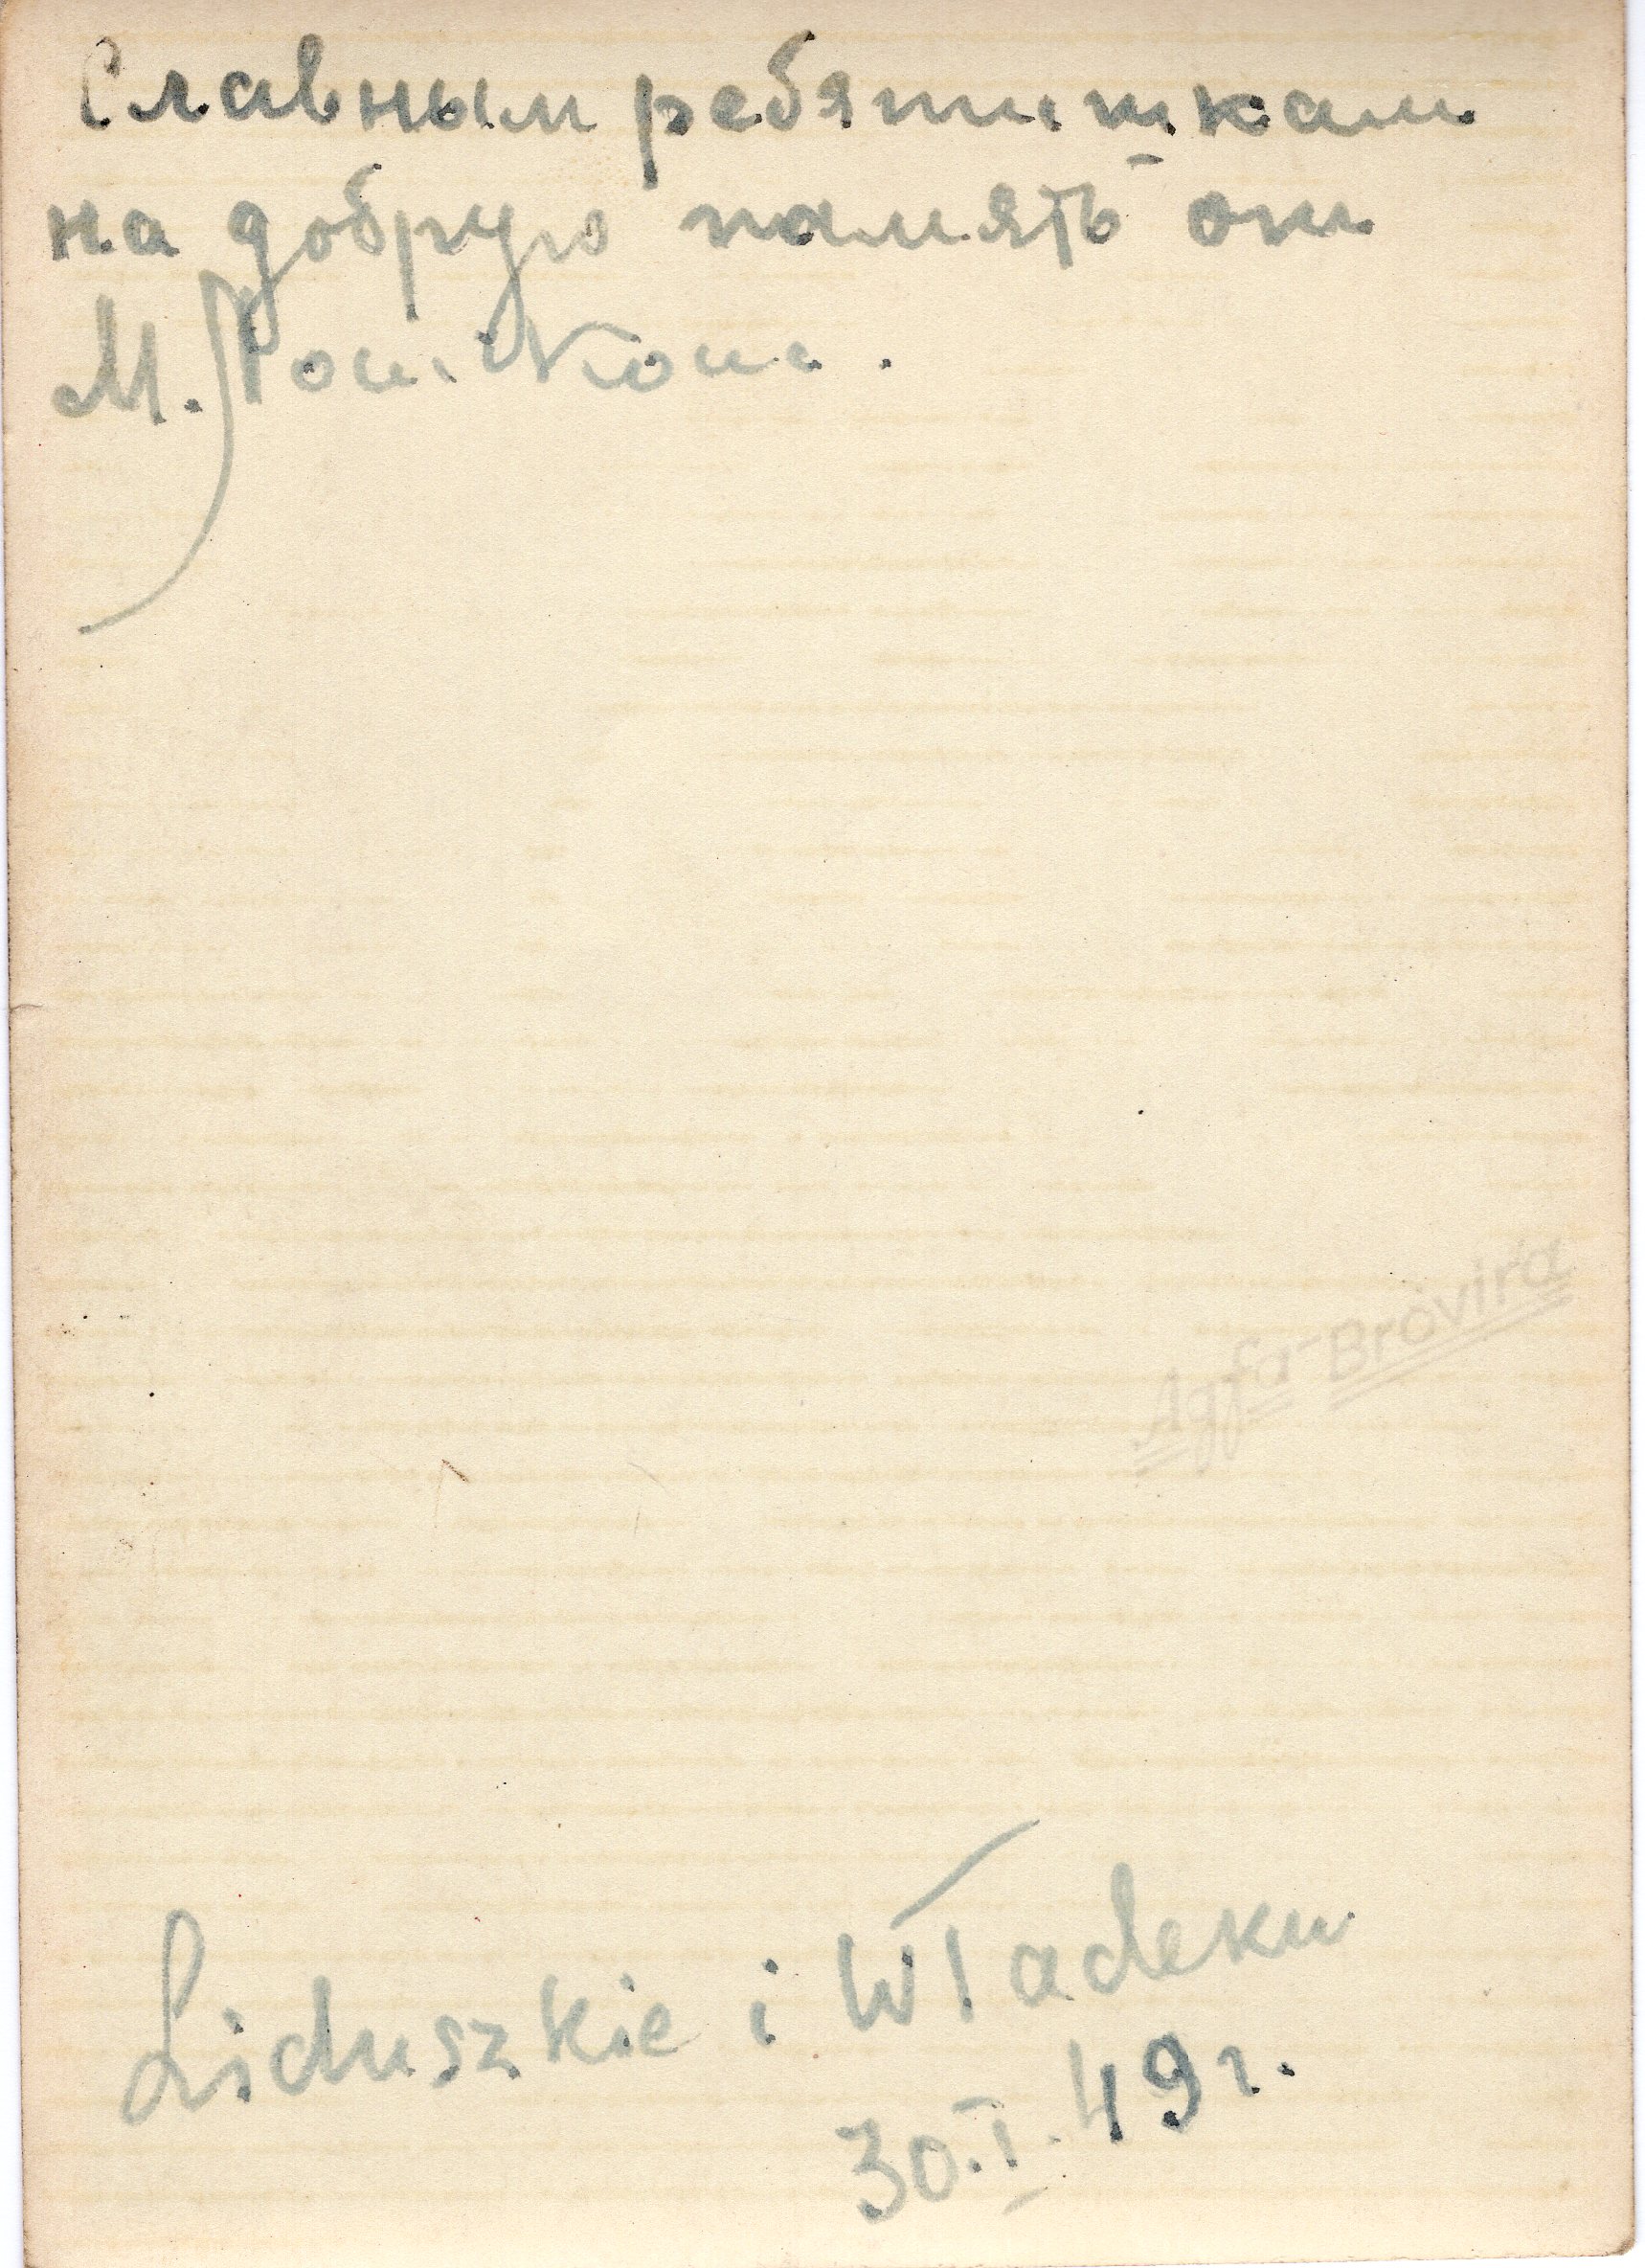 Славным ребятишкам
на добрую память от
М.
Agfa-Brovira
Liduszkie i Władeku
30.I.49г.